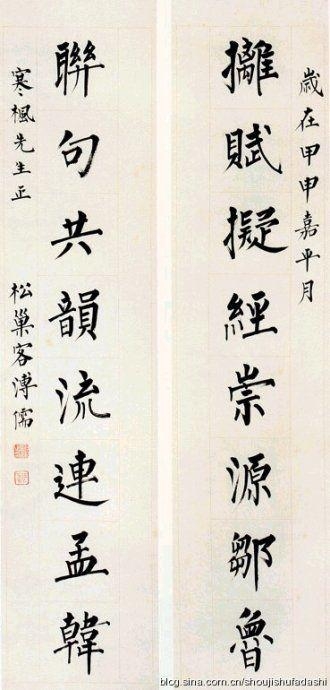 歲在甲申嘉平月
摛賦擬經崇源鄒魯
聯句共韻流連孟韓
寒楓先生正
松巢客溥儒
blog.sina.com.cn/shoujishufadashi